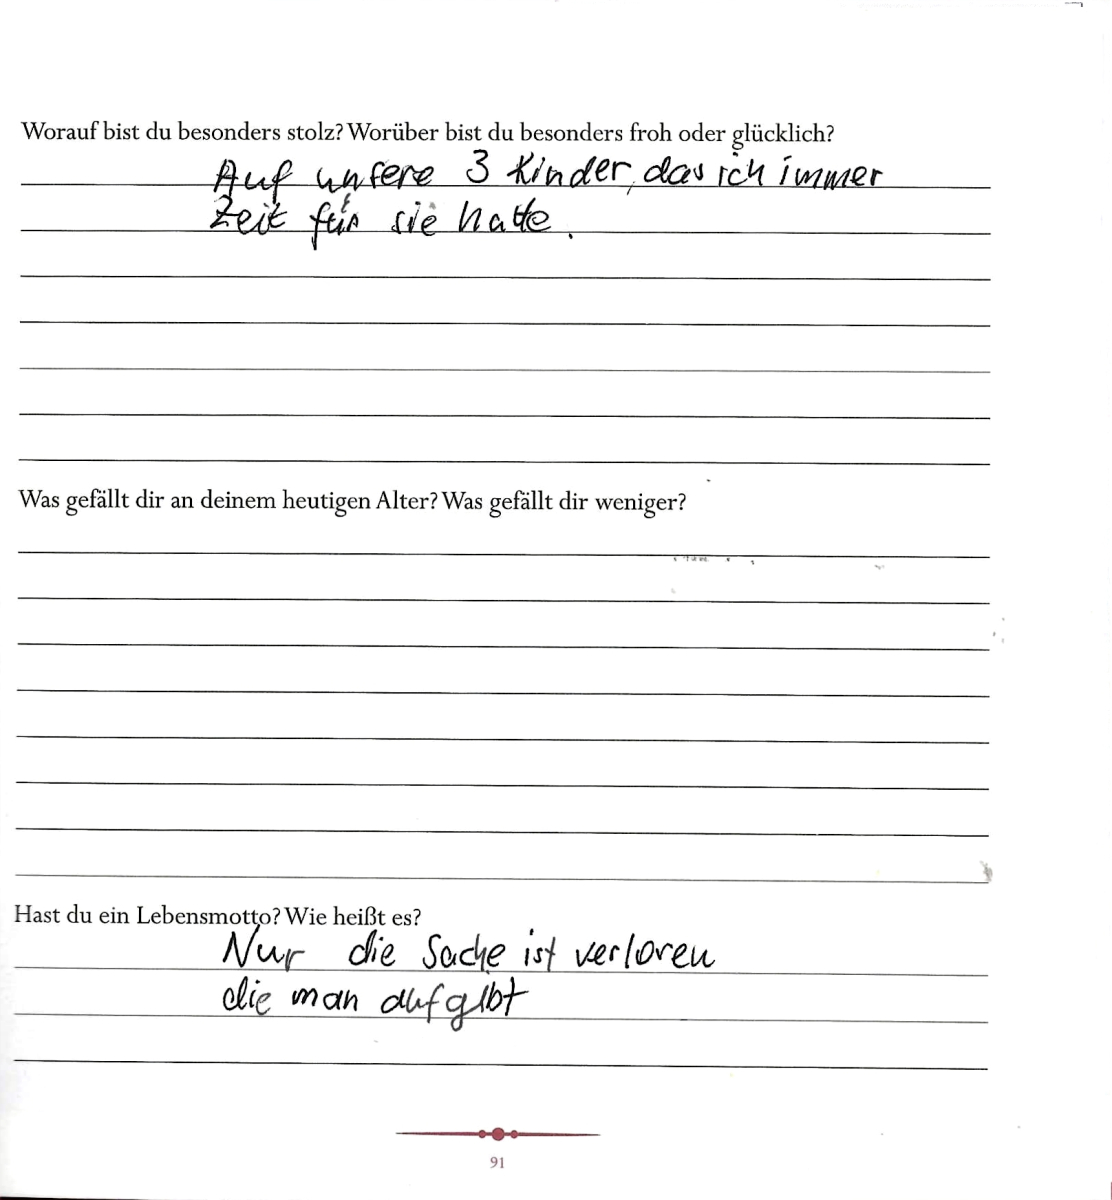 Worauf bist du besonders stolz? Worüber bist du besonders froh oder glücklich?
Auf unsere 3 Kinder, das ich immer
Zeit für sie hatte.
Was gefällt dir an deinem heutigen Alter? Was gefällt dir weniger?
Hast du ein Lebensmotto? Wie heißt es?
Nur die Sache ist verloren
die man aufgibt
91